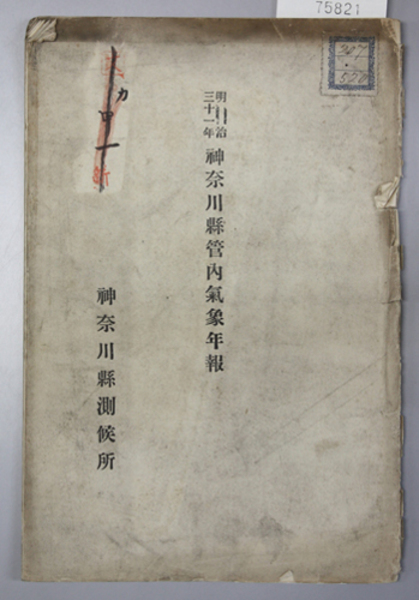 75821
明治
三十一年
神奈川縣管内氣象年報
神奈川縣測候所
カ
四
一